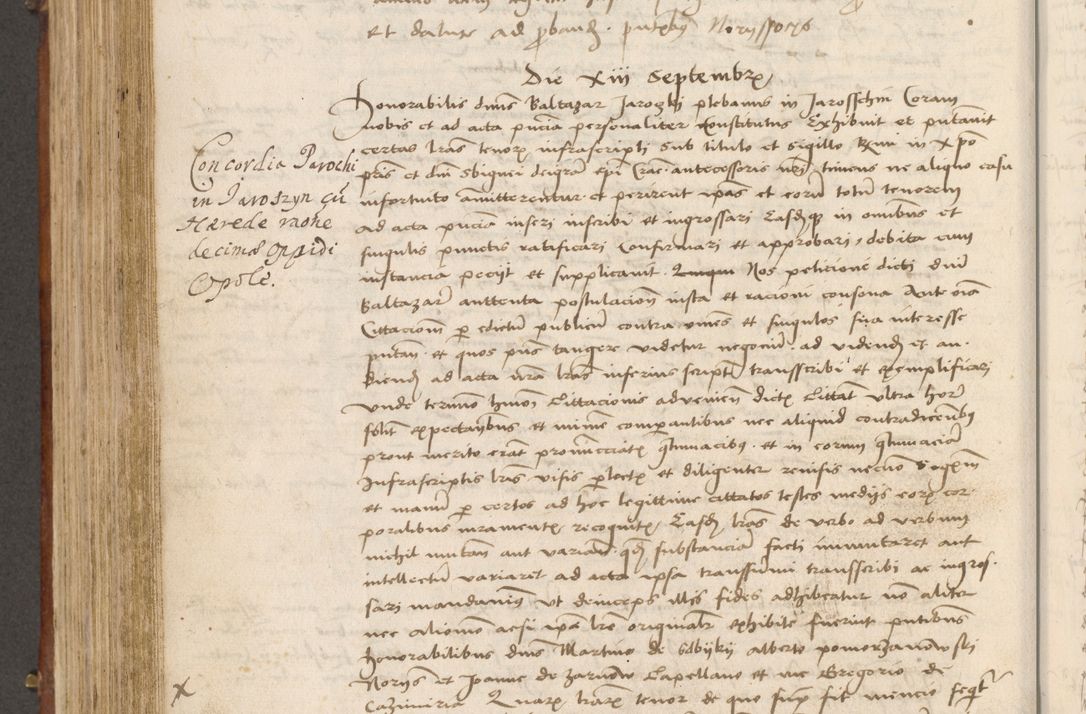 et datute ad proband. putibus Norussorys
Die xiii Septembr
Honorabilis dnus Baltazar Jarozky plebanus in Jarosschin Coram
nobis et ad acta pncia personaliter constitutus Exhibuit et putauit
certas lras tenor infrascripti sub titulo et sigillo Rmi in xpo
pris et dni Sbignei dei gra epi Crac. antecessoris nri, timens ne aliquo casu
infortuito amitterentur et perirent ipas et eoru totu tenorem
ad acta pncia inseri inscribi et ingrossari Easdq in omibus et
singulis punctis ratificari Confirmari et approbari, debita cum
instancia peciit et supplicauit. Nos peticione dicti dni
Baltazar anttenta postulacion iusta et racioni consona Ante oia
Cittaciom per edictu publicu contra omes et singulos sua interesse
putan. et quos pns tangere videtur negociu. ad vidend et au.
diend ad acta nra lras inferius script transscribi et exemplificari
unde termio hmoi Cittacionis adveniens dicte Cittat ultra hor
solit expectantibus et minime comparantibus nec aliquid contradicentibus
prout merito erat pronunciatis contumacibus. et in eorum contumacia
Infrascriptis lras visis perlectis et diligenter reuisis necno
et manu per certos ad hoc legittime cittatos testes medijs eorum cor
poralibus iuramentis, recognitis, Easd lras de verbo ad verbum
nichil mutan aut varian. qd substancia facti immutaret aut
intellectu variaret ad acta ipsa transsumi transscribi ac ingros.
sari mandauimus ut deinceps illis fides adhibeatur no aliter
nec aliomo acsi ipe lre originalr exhibite fuerint putibus
honorabilibus dnis Martino de Alberto pomorzanowski
Norijs et Joanne de Zarnow Capellano et me Gregorio de
Cazimiria Quarum lrarum tenor de quo supra fit mencio sequitur
Concordia Parochi
in Jaroszyn cu
Hærede raone
decimæ Oppidi
Opole.
x